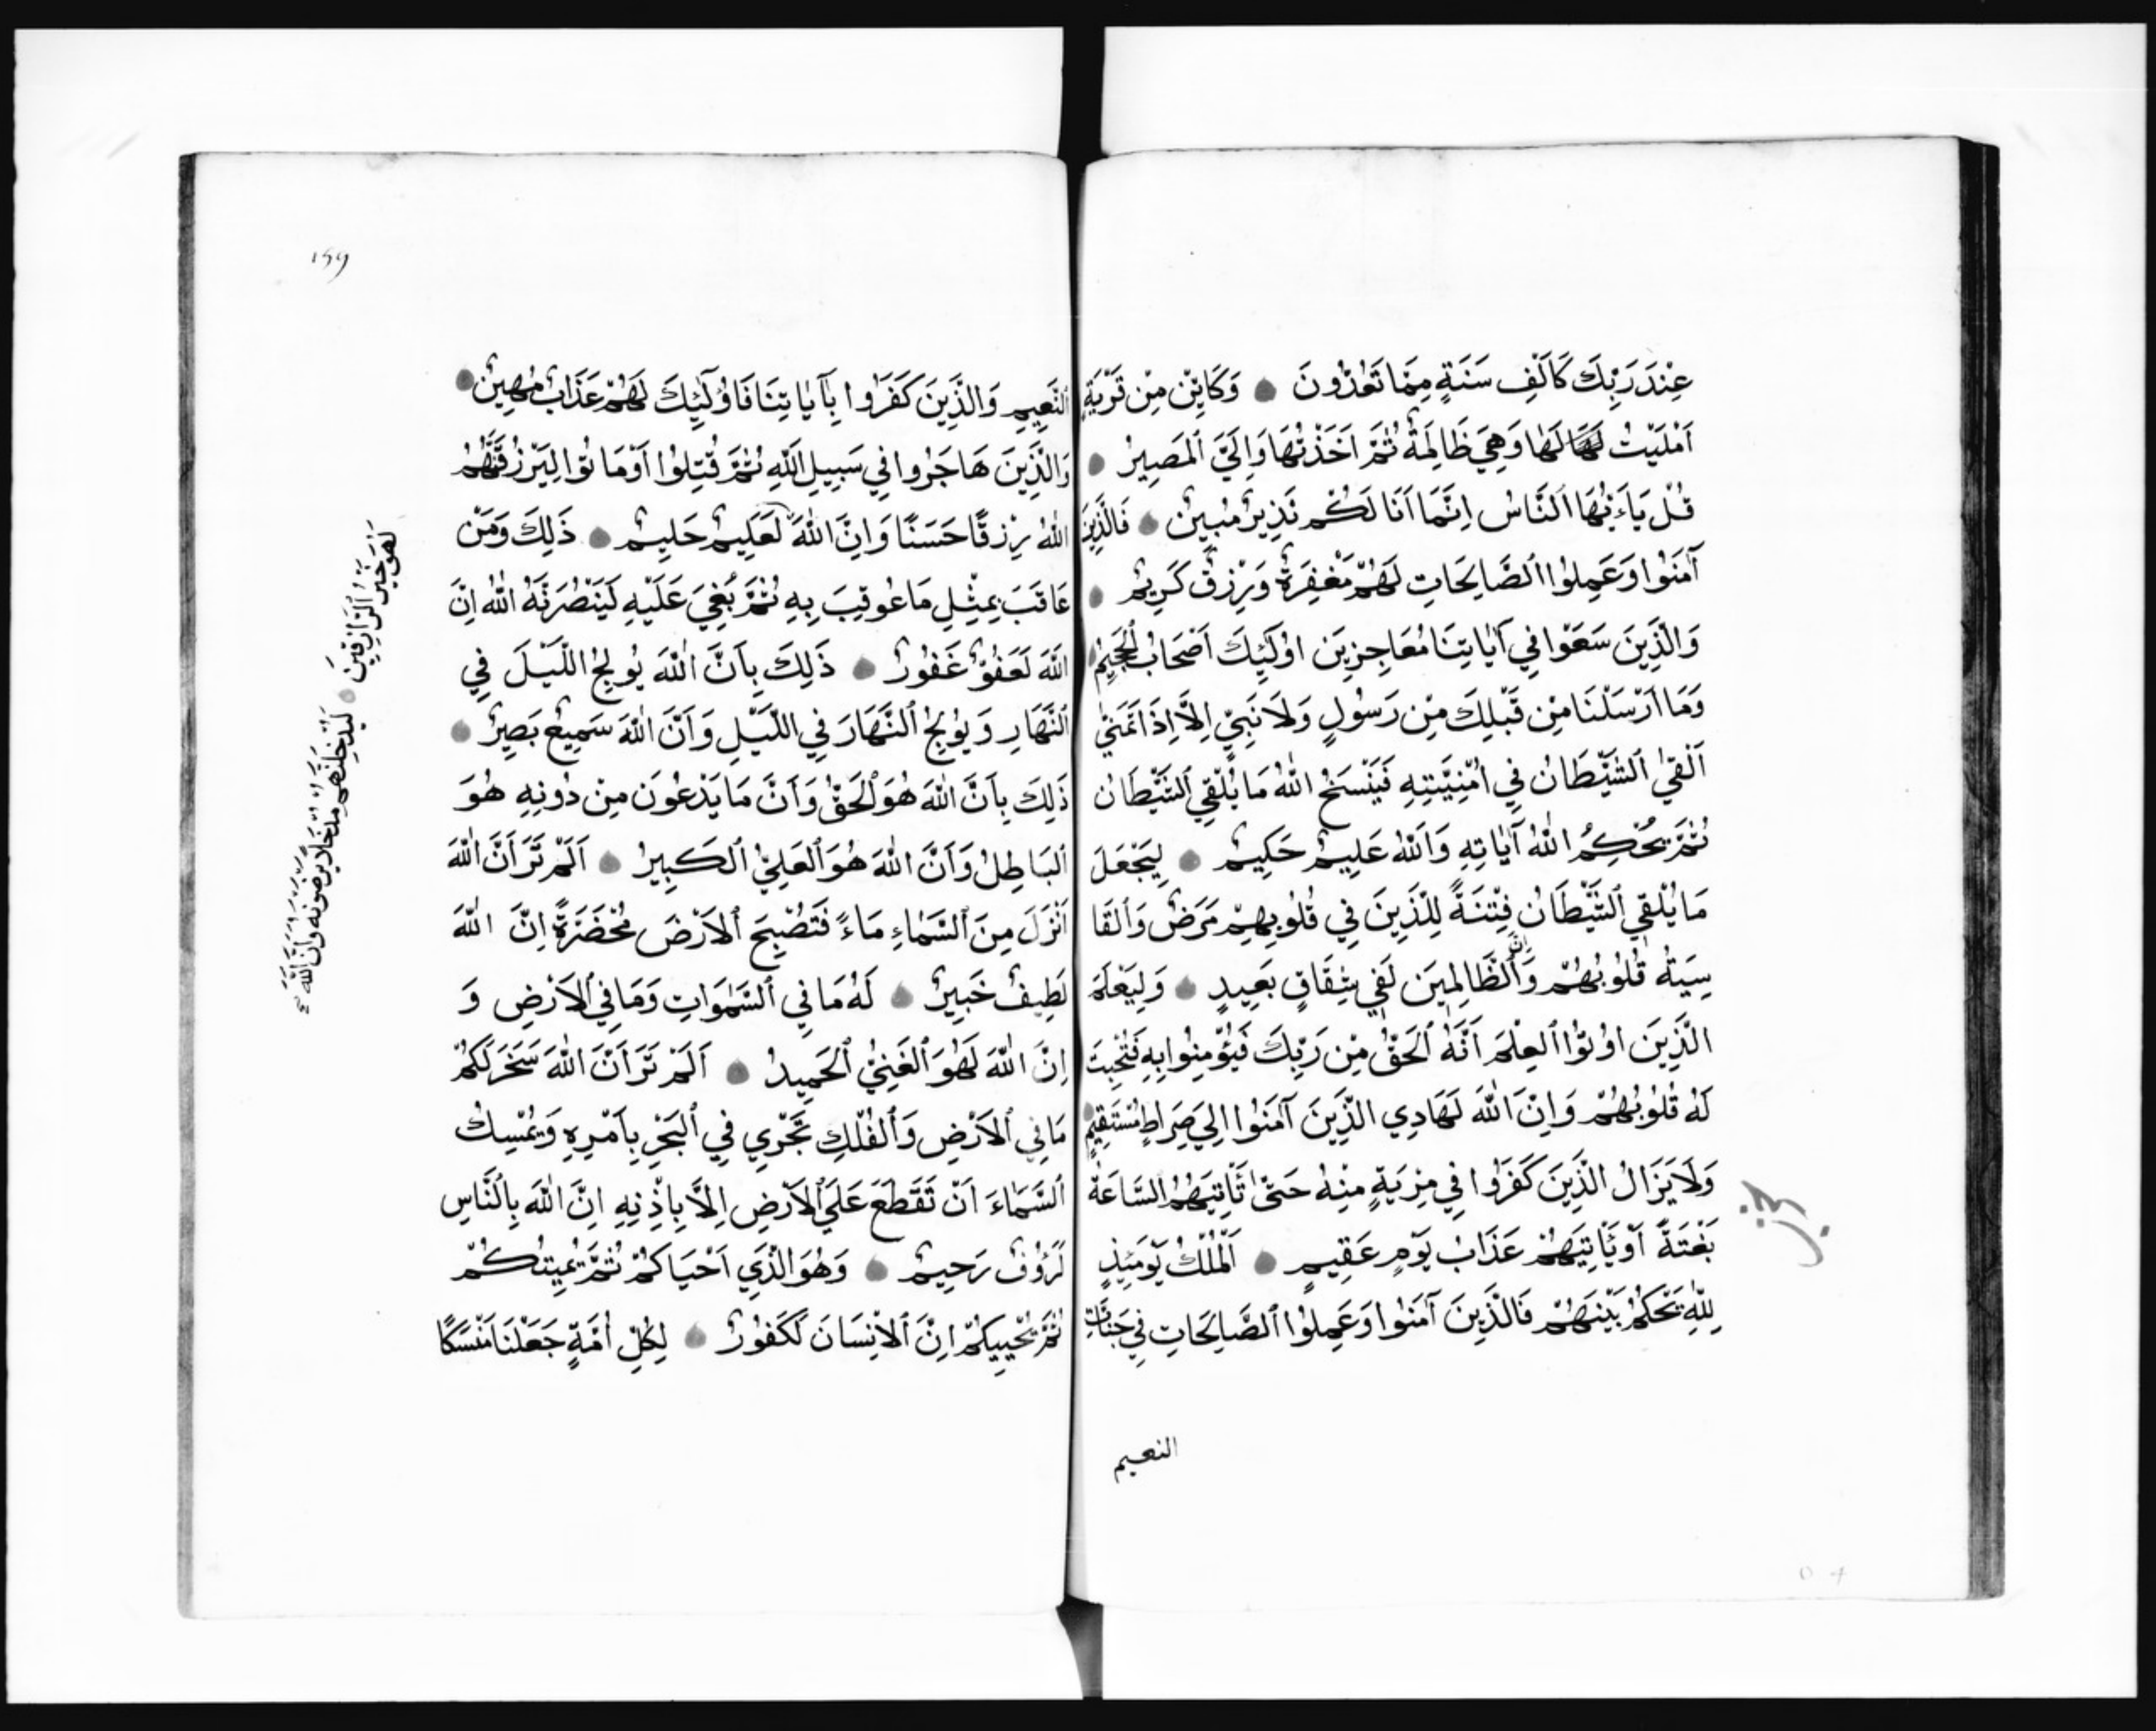 عِنْدَ رَبِّكَ كَاَلْفِ سَنَةٍ مِمَّا تَعُدُّونَ وَكَايِّنْ مِنْ قَرْيَةٍ
اَمْلَيْتُ لَهَا لَهَا وَهِيَ ظَالِمَةٌ ثُمَّ اَخَذْتُهَا وَاِلَيَّ الْمَصِيرُ
قُلْ يَاءَيُّهَا النَّاسُ اِنَّمَا اَنَا لَكُمْ نَذِيرٌ مُبِينٌ فَالَّذِينَ
آمَنُوا وَعَمِلُوا الصَّالِحَاتِ لَهُمْ مَغْفِرَةٌ وَرِزْقٌ كَرِيمٌ
وَالَّذِينَ سَعَوْا فِي آيَاتِنَا مُعَاجِزِينَ اُولَٓئِكَ اَصْحَابُ الْجَحِيمِ
وَمَا اَرْسَلْنَا مِنْ قَبْلِكَ مِنْ رَسُولٍ وَلَا نَبِيٍّ اِلَّا اِذَا تَمَنّٰي
اَلْقَيٰ الشَّيْطَانُ فِي اُمْنِيَّتِهِ فَيَنْسَخُ اللّٰهُ مَا يُلْقِي الشَّيْطَانُ
ثُمَّ يُحْكِمُ اللّٰهُ آيَاتِهِ وَاللّٰهُ عَلِيمٌ حَكِيمٌ لِيَجْعَلَ
مَا يُلْقِي الشَّيْطَانُ فِتْنَةً لِلَّذِينَ فِي قُلُوبِهِمْ مَرَضٌ وَالْقَا
سِيَةُ قُلُوبُهُمْ وَاِنَّ الظَّالِمِينَ لَفِي شِقَاقٍ بَعِيدٍ وَلِيَعْلَمَ
الَّذِينَ اُوتُوا الْعِلْمَ اَنَّهُ الْحَقُّ مِنْ رَبِّكَ فَيُؤْمِنُوا بِهِ فَتُخْبِتَ
لَهُ قُلُوبُهُمْ وَاِنَّ اللّٰهَ لَهَادِي الَّذِينَ آمَنُوا اِلَي صِرَاطٍ مُسْتَقِيمٍ
وَلَا يَزَالُ الَّذِينَ كَفَرُوا فِي مِرْيَةٍ مِنْهُ حَتّٰي تَاْتِيَهُمُ السَّاعَةُ
بَغْتَةً اَوْ يَاْتِيَهُمْ عَذَابُ يَوْمٍ عَقِيمٍ اَلْمُلْكُ يَوْمَئِذٍ
لِلّٰهِ يَحْكُمُ بَيْنَهُمْ فَالَّذِينَ آمَنُوا وَعَمِلُوا الصَّالِحَاتِ فِي جَنَّاتِ
النعيم
١٩٩
النَّعِيمِ وَالَّذِينَ كَفَرُوا بِآيَاتِنَا فَاُولٓئِكَ لَهُمْ عَذَابٌ مُهِينٌ
وَالَّذِينَ هَاجَرُوا فِي سَبِيلِ اللّٰهِ ثُمَّ قُتِلُوا اَوْ مَاتُوا لَيَرْزُقَنَّهُمُ
اللّٰهُ رِزْقًا حَسَنًا وَاِنَّ اللّٰهَ لَعَلِيمٌ حَلِيمٌ ذَلِكَ وَمَنْ
عَاقَبَ بِمِثْلِ مَا عُوقِبَ بِهِ ثُمَّ بُغِيَ عَلَيْهِ لَيَنْصُرَنَّهُ اللّٰهُ اِنَّ
اللّٰهَ لَعَفُوٌّ غَفُورٌ ذَلِكَ بِاَنَّ اللّٰهَ يُولِجُ اللَّيْلَ فِي
النَّهَارِ وَيُولِجُ النَّهَارَ فِي اللَّيْلِ وَاَنَّ اللّٰهَ سَمِيعٌ بَصِيرٌ
ذَلِكَ بِاَنَّ اللّٰهَ هُوَ الْحَقُّ وَاَنَّ مَا يَدْعُونَ مِنْ دُونِهِ هُوَ
الْبَاطِلُ وَاَنَّ اللّٰهَ هُوَ الْعَلِيُّ الْكَبِيرُ اَلَمْ تَرَ اَنَّ اللّٰهَ
اَنْزَلَ مِنَ السَّمَاءِ مَاءً فَتُصْبِحُ الْاَرْضُ مُخْضَرَّةً اِنَّ اللّٰهَ
لَطِيفٌ خَبِيرٌ لَهُ مَا فِي السَّمٰوَاتِ وَمَا فِي الْاَرْضِ وَ
اِنَّ اللّٰهَ لَهُوَ الْغَنِيُّ الْحَمِيدُ اَلَمْ تَرَ اَنَّ اللّٰهَ سَخَّرَ لَكُمْ
مَا فِي الْاَرْضِ وَالْفُلْكِ تَجْرِي فِي الْبَحْرِ بِاَمْرِهِ وَيُمْسِكُ
السَّمَاءَ اَنْ تَقَطَعَ عَلَي الْاَرْضِ اِلَّا بِاِذْنِهِ اِنَّ اللّٰهَ بِالنَّاسِ
لَرَؤُفٌ رَحِيمٌ وَهُوَ الَّذِي اَحْيَاكُمْ ثُمَّ يُمِيتُكُمْ
ثُمَّ يُحْيِيكُمْ اِنَّ الْاِنْسَانَ لَكَفُورٌ لِكُلِّ اُمَّةٍ جَعَلْنَا مَنْسَكًا
لَهُوَ خَيْرُ الرَّازِقِينَ
لَيُدْخِلَنَّهُمْ مُدْخَلًا يَرْضَوْنَهُ وَاِنَّ اللّٰهَ